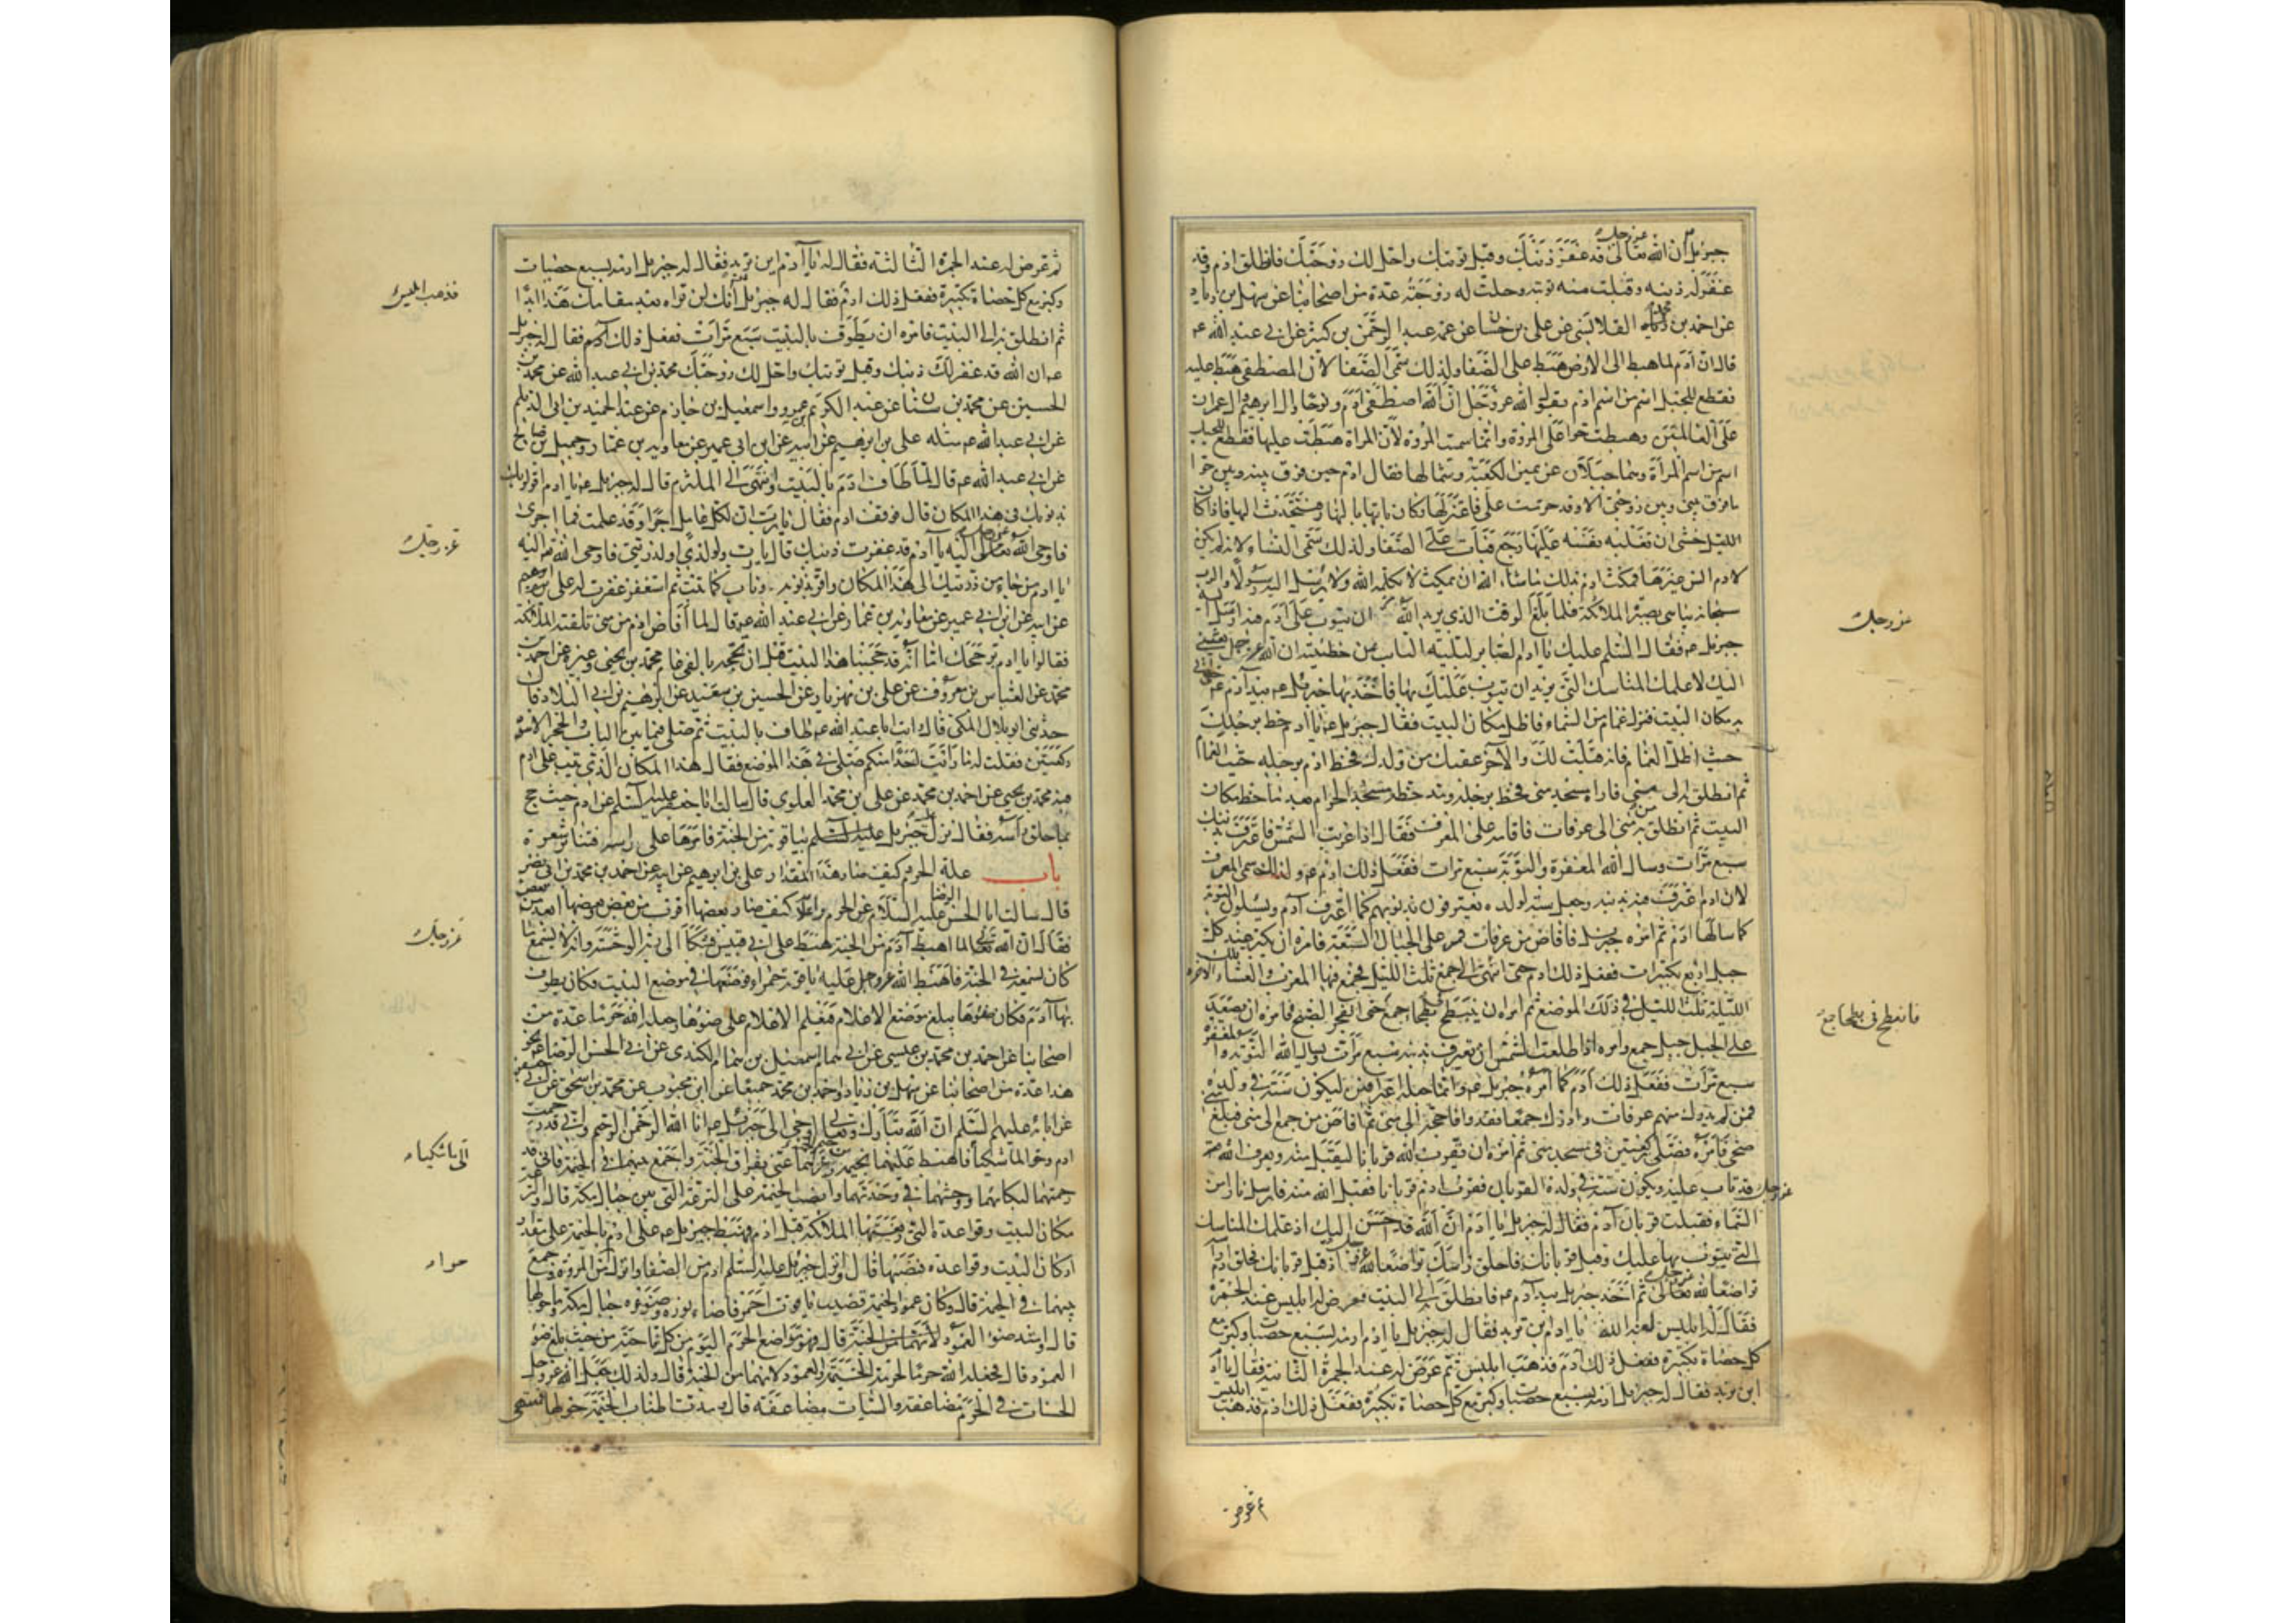 جبرئيل ان الله تعالى قد غفر ذنبك وقبل توبتك واحل لك زوجتك فانطلق ادم وقد
غفر له ذنبه وقبلت منه توبته وحلت له زوجته عدة من اصحابنا عن سهل بن زياد
عن احمد بن محمد القلانسي عن علي بن حسان عن عمه عبد الرحمن بن كثير عن ابي عبد الله عم
قال ان آدم لما هبط الى الارض هبط على الصفا ولذلك سمي الصفا لان المصطفى هبط عليه
فقطع للجبل اسم من اسم ادم بقول الله عز وجل ان الله اصطفى آدم ونوحا وال ابرهيم وال عمران
على العالمين وهبطت حوا على المروة وانما سميت المروة لان المراة هبطت عليها فقطع للجبل
اسم من اسم المرأة وهما جبلان عن يمين الكعبة وشمالها فقال ادم حين فرق بينه وبين حوا
ما فرق بيني وبين زوجتي الا وقد حرمت علي فاعتزلها وكان ياتيها بالنهار فيتحدث اليها فاذا كان
الليل خشي ان تغلبه نفسه عليها رجع فبات على الصفا ولذلك سمي النساء لانه لم يكن
لادم انس غيرها فمكث ادم بذلك ما شاء الله ان يمكث لا يكلمه الله ولا يرسل اليه رسولا والرب
سبحانه يباهي بصبره الملائكة فلما بلغ الوقت الذي يريد الله ان يتوب على آدم فيه ارسل اليه
جبرئيل عم فقال السلم عليك يا ادم الصابر لبليته التائب من خطيئته ان الله عز وجل بعثني
اليك لاعلمك المناسك التي يريد ان يتوب عليك بها فاخذ جبرئيل عم بيد آدم عم حتى اتى
به مكان البيت فنزل غمام من السماء فاظل مكان البيت فقال جبرئيل عم يا ادم خط برجلك
حيث اظلك الغمام فانه قبلة لك والآخر عقبك من ولدك فخط ادم برجله حيث الغمام
ثم انطلق به الى منى فاراه مسجد منى فخط برجله ومد خطة مسجد الحرام بعد ما خط مكان
البيت ثم انطلق به من منى الى عرفات فاقامه على المعرف فقال اذا غربت الشمس فاعترف بذنبك
سبع مرات وسل الله المغفرة والتوبة سبع مرات ففعل ذلك ادم عم ولذلك سمي المعرف
لان ادم اعترف فيه بذنبه وجعل سنة لولده يعترفون بذنوبهم كما اعترف آدم ويسئلون التوبة
كما سالها ادم ثم امره جبرئيل فافاض من عرفات فمر على الجبال السبعة فامره ان يكبر عند كل
جبل اربع تكبيرات ففعل ذلك ادم حتى انتهى الى جمع ثلث الليل فجمع فيها المغرب والعشاء الآخرة
تلك الليلة ثلث الليل في ذلك الموضع ثم امره ان ينبطح في بطحاء جمع حتى انفجر الصبح فامره ان يصعد
على الجبل جبل جمع وامره اذا طلعت الشمس ان يعترف بذنبه سبع مرات ويسال الله التوبة والمغفرة
سبع مرات ففعل ذلك آدم كما امره جبرئيل عم وانما جعله اعترافين ليكون سنة في ولده
فمن لم يدرك منهم عرفات وادرك جمعا فقد وافى حجه الى منى ثم افاض من جمع الى منى فبلغ منى
ضحى فامره فصلى ركعتين في مسجد منى ثم امره ان يقرب لله قربانا ليقبل منه ويعرف ان الله
عز وجل قد تاب عليه ويكون سنة في ولده القربان فقرب ادم قربانا فقبل الله منه فارسل نارا من
السماء فقبلت قربان آدم فقال له جبرئيل يا ادم ان الله قد احسن اليك اذ علمك المناسك
التي يتوب بها عليك وقبل قربانك فاحلق راسك تواضعا لله عز وجل اذ قبل قربانك فحلق ادم راسه
تواضعا لله تعالى ثم اخذ جبرئيل بيد آدم عم فانطلق به الى البيت فعرض له ابليس عند الجمرة
فقال له ابليس لعنه الله يا ادم اين تريد فقال له جبرئيل يا ادم ارمه بسبع حصيات وكبر مع
كل حصاة تكبيرة ففعل ذلك آدم فذهب ابليس ثم عرض له عند الجمرة الثانية فقال يا ادم
اين تريد فقال له جبرئيل ارمه بسبع حصيات وكبر مع كل حصاة تكبيرة ففعل ذلك ادم فذهب ابليس
عز وجل
فانبطح في بطحا جمع
ثم عرض
ثم عرض له عند الجمرة الثالثة فقال له يا آدم اين تريد فقال له جبرئيل ارمه بسبع حصيات
وكبر مع كل حصاة تكبيرة ففعل ذلك ادم فقال له جبرئيل انك لن تراه بعد مقامك هذا ابدا
ثم انطلق به الى البيت فامره ان يطوف بالبيت سبع مرات ففعل ذلك آدم فقال له جبرئيل
عم ان الله قد غفر لك ذنبك وقبل توبتك واحل لك زوجتك محمد بن ابي عبد الله عن محمد بن
الحسين عن محمد بن سنان عن عبد الكريم بن عمرو واسمعيل بن حازم عن عبد الحميد بن ابي الديلم
عن ابي عبد الله عم مثله علي بن ابرهيم عن ابيه عن ابن ابي عمير عن معاوية بن عمار وجميل بن صالح
عن ابي عبد الله عم قال لما طاف ادم بالبيت وانتهى الى الملتزم قال له جبرئيل عم يا ادم اقر لربك
بذنوبك في هذا المكان قال فوقف ادم فقال يا رب ان لكل عامل اجرا وقد عملت فما اجري
فاوحى الله تعالى اليه يا آدم قد غفرت ذنبك قال يا رب ولولدي او لذريتي فاوحى الله عز وجل اليه
يا ادم من جاء من ذريتك الى هذا المكان واقر بذنوبه وتاب كما تبت ثم استغفر غفرت له علي بن ابرهيم
عن ابيه عن ابن ابي عمير عن معاوية بن عمار عن ابي عبد الله عم قال لما افاض ادم من منى تلقته الملائكة
فقالوا يا ادم بر حجك اما انه قد حججنا هذا البيت قبل ان تحجه بالفي عام محمد بن يحيى وغيره عن احمد بن
محمد عن العباس بن معروف عن علي بن مهزيار عن الحسين بن سعيد عن ابرهيم بن ابي البلاد قال
حدثني ابو بلال المكي قال رايت ابا عبد الله عم طاف بالبيت ثم صلى فيما بين الباب والحجر الاسود
ركعتين فقلت له ما رأيت احدا منكم صلى في هذا الموضع فقال هذا المكان الذي تيب على ادم
فيه محمد بن يحيى عن احمد بن محمد عن علي بن محمد العلوي قال سالت ابا جعفر عليه السلم عن ادم حيث حج
بما حلق رأسه فقال نزل جبرئيل عليه السلم بياقوتة من الجنة فامرها على راسه فتناثر شعره
باب علة الحرم وكيف صار هذا المقدار علي بن ابرهيم عن ابيه عن احمد بن محمد بن ابي نصر
قال سالت ابا الحسن الرضا عليه السلام عن الحرم واعلامه كيف صار بعضها اقرب من بعض وبعضها ابعد من بعض
فقال ان الله تعالى لما اهبط آدم من الجنة هبط على ابي قبيس فشكا الى ربه الوحشة وانه لا يسمع ما
كان يسمعه في الجنة فاهبط الله عز وجل عليه ياقوتة حمراء فوضعها في موضع البيت فكان يطوف
بها آدم فكان ضوؤها يبلغ موضع الاعلام فيعلم الاعلام على ضوئها وجعله الله حرما عدة من
اصحابنا عن احمد بن محمد بن عيسى عن ابي همام اسمعيل بن همام الكندي عن ابي الحسن الرضا عم نحو
هذا عدة من اصحابنا عن سهل بن زياد واحمد بن محمد جميعا عن ابن محبوب عن محمد بن اسحق عن ابي جعفر
عن ابائه عليهم السلم ان الله تبارك وتعالى اوحى الى جبرئيل عم انا الله الرحمن الرحيم واني قد رحمت
ادم وحوا لما شكيا فاهبط عليهما بخيمة من خيم الجنة وعزهما عني بفراق الجنة واجمع بينهما في الخيمة فاني قد
رحمتهما لبكائهما ووحشتهما في وحدتهما وانصب الخيمة على الترعة التي بين جبال مكة قال والترعة
مكان البيت وقواعده التي رفعتها الملائكة قبل ادم فهبط جبرئيل عم على ادم بالخيمة على مقدار
اركان البيت وقواعده فنصبها قال وانزل جبرئيل عليه السلم ادم من الصفا وانزل حوا من المروة وجمع
بينهما في الخيمة قال وكان عمود الخيمة قضيب ياقوت احمر فاضاء نوره وضوءه جبال مكة وما حولها
قال وامتد ضوء العمود لانهما من الجنة قال فهو مواضع الحرم اليوم من كل ناحية من حيث بلغ ضوء
العمود قال فجعله الله حرما لحرمة الخيمة والعمود لانهما من الجنة قال ولذلك جعل الله عز وجل
الحسنات في الحرم مضاعفة والسيات مضاعفة قال ومدت اطناب الخيمة حولها فمنتهى
فذهب ابليس
عز وجل
عز وجل
الى ما شكياه
حواء